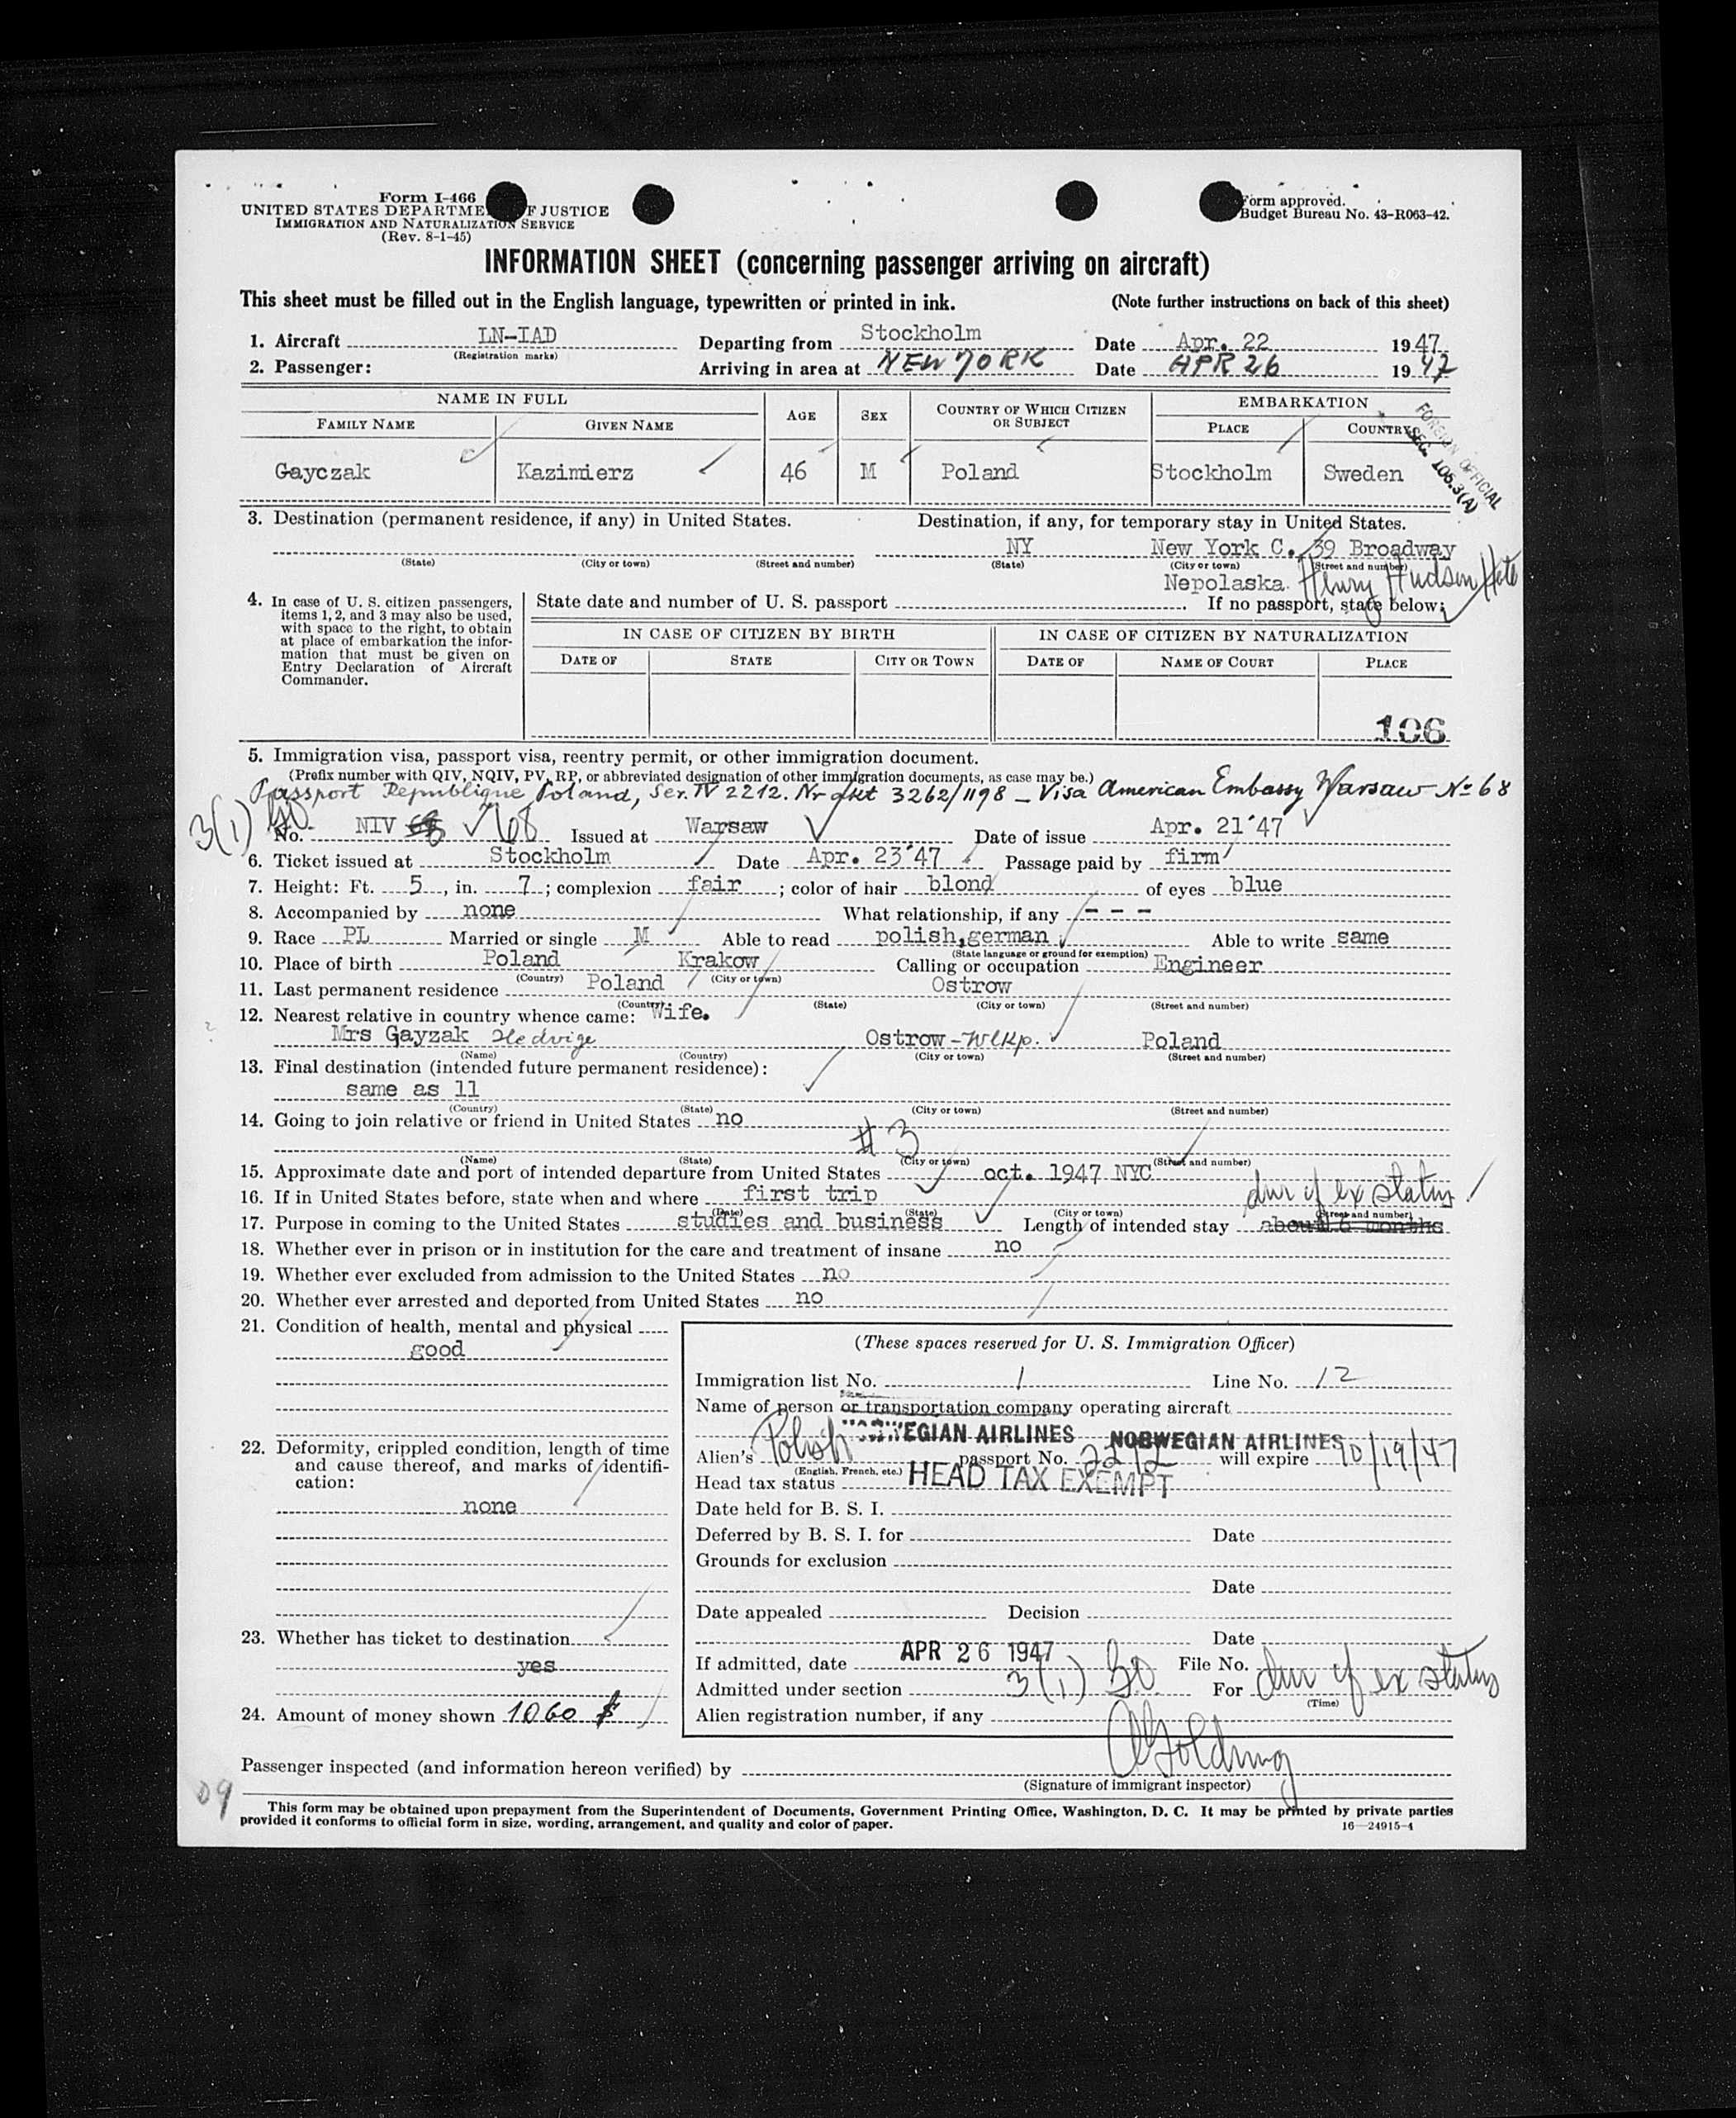 Form I-466
UNITED STATES DEPARTMENT OF JUSTICE
IMMIGRATION AND NATURALIZATION SERVICE
(Rev. 8-1-45)
Form approved.
Budget Bureau No. 43-R063-42.
INFORMATION SHEET (concerning passenger arriving on aircraft)
This sheet must be filled out in the English language, typewritten or printed in ink. (Note further instructions on back of this sheet)
1. Aircraft LN-IAD Departing from Stockholm Date Apr. 22 1947
(Registration marks)
2. Passenger: Arriving in area at NEW YORK Date APR 26 1947
NAME IN FULL AGE SEX COUNTRY OF WHICH CITIZEN OR SUBJECT EMBARKATION
FAMILY NAME GIVEN NAME PLACE COUNTRY
Gayczak Kazimierz 46 M Poland Stockholm Sweden
FOREIGN OFFICIAL
SEC. 105.3(A)
3. Destination (permanent residence, if any) in United States. Destination, if any, for temporary stay in United States.
NY New York C. 39 Broadway
(State) (City or town) (Street and number) (State) (City or town) (Street and number)
Nepolaska. Henry Hudson Hote
4. In case of U. S. citizen passengers, items 1, 2, and 3 may also be used, with space to the right, to obtain at place of embarkation the information that must be given on Entry Declaration of Aircraft Commander.
State date and number of U. S. passport If no passport, state below:
IN CASE OF CITIZEN BY BIRTH IN CASE OF CITIZEN BY NATURALIZATION
DATE OF STATE CITY OR TOWN DATE OF NAME OF COURT PLACE
106
5. Immigration visa, passport visa, reentry permit, or other immigration document.
(Prefix number with QIV, NQIV, PV, RP, or abbreviated designation of other immigration documents, as case may be.)
Passport Republique Poland, Ser. IV 2212. Nr akt 3262/1198 - Visa American Embassy Warsaw No 68
3(1)
No. NIV 68 Issued at Warsaw Date of issue Apr. 21'47
6. Ticket issued at Stockholm Date Apr. 23'47 Passage paid by firm
7. Height: Ft. 5, in. 7; complexion fair; color of hair blond of eyes blue
8. Accompanied by none What relationship, if any - - -
9. Race PL Married or single M Able to read polish,german Able to write same
(State language or ground for exemption)
10. Place of birth Poland Krakow Calling or occupation Engineer
(Country) (City or town)
11. Last permanent residence Poland Ostrow
(Country) (State) (City or town) (Street and number)
12. Nearest relative in country whence came: Wife.
Mrs Gayzak Hedvige Ostrow-Wlkp. Poland
(Name) (Country) (City or town) (Street and number)
13. Final destination (intended future permanent residence):
same as 11
(Country) (State) (City or town) (Street and number)
14. Going to join relative or friend in United States no
# 3
(Name) (State) (City or town) (Street and number)
15. Approximate date and port of intended departure from United States oct. 1947 NYC
16. If in United States before, state when and where first trip
dur of ex status
(Date) (State) (City or town) (Street and number)
17. Purpose in coming to the United States studies and business Length of intended stay about 6 months
18. Whether ever in prison or in institution for the care and treatment of insane no
19. Whether ever excluded from admission to the United States no
20. Whether ever arrested and deported from United States no
21. Condition of health, mental and physical
good
22. Deformity, crippled condition, length of time and cause thereof, and marks of identification:
none
23. Whether has ticket to destination
yes
24. Amount of money shown 1060 $
(These spaces reserved for U. S. Immigration Officer)
Immigration list No. 1 Line No. 12
Name of person or transportation company operating aircraft
NORWEGIAN AIRLINES NORWEGIAN AIRLINES
Alien's Polish passport No. 2212 will expire 10/19/47
(English, French, etc.)
Head tax status HEAD TAX EXEMPT
Date held for B. S. I.
Deferred by B. S. I. for Date
Grounds for exclusion
Date
Date appealed Decision
Date
If admitted, date APR 26 1947 File No.
Admitted under section 3(1) For dur of ex status
(Time)
Alien registration number, if any
Passenger inspected (and information hereon verified) by
(Signature of immigrant inspector)
09
This form may be obtained upon prepayment from the Superintendent of Documents, Government Printing Office, Washington, D. C. It may be printed by private parties
provided it conforms to official form in size, wording, arrangement, and quality and color of paper. 16—24915-4